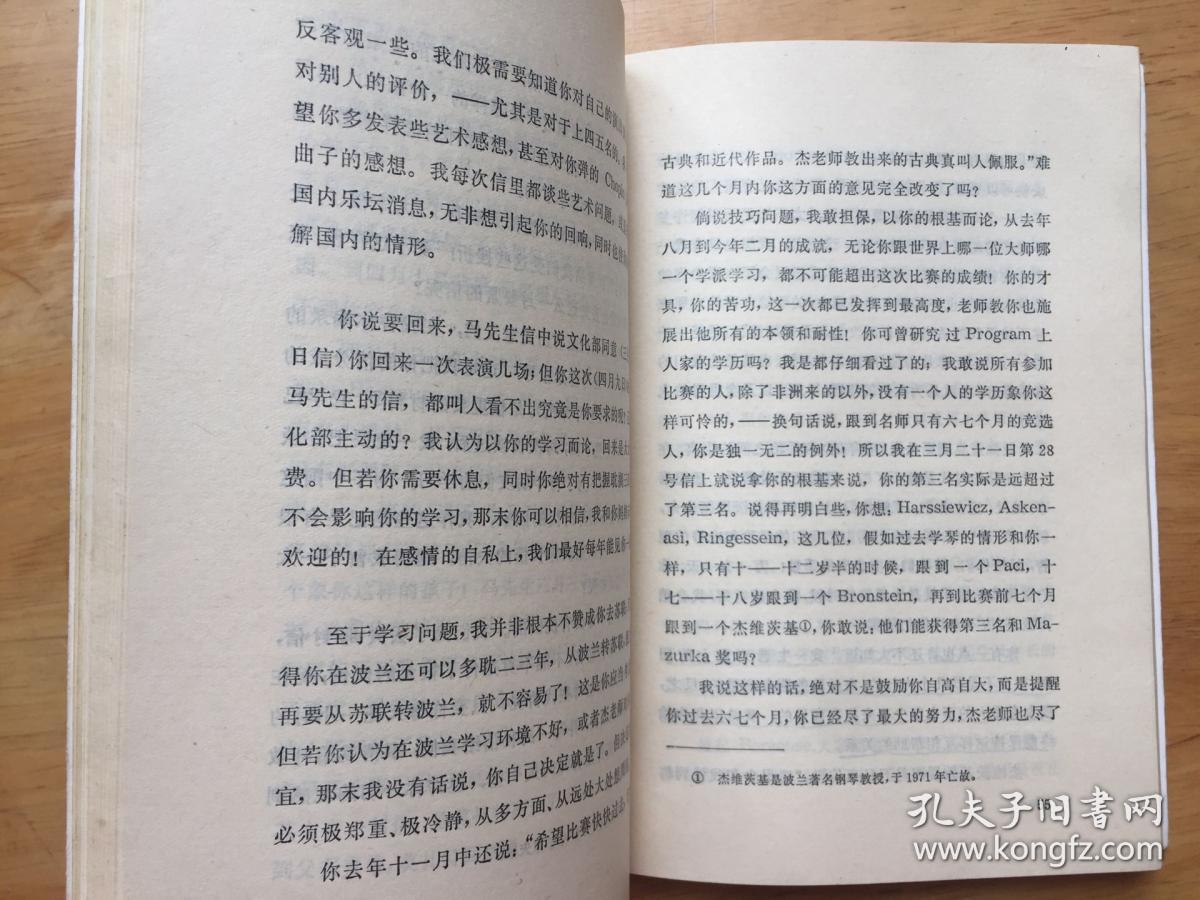 反客观一些。我们极需要知道你对自己的
对别人的评价，——尤其是对于上四五名的
望你多发表些艺术感想，甚至对你弹的 Chopin
曲子的感想。我每次信里都谈些艺术问题，
国内乐坛消息，无非想引起你的回响，同时也
解国内的情形。
你说要回来，马先生信中说文化部同意（三
日信）你回来一次表演几场；但你这次（四月九日
马先生的信，都叫人看不出究竟是你要求的呢？
化部主动的？我认为以你的学习而论，回来是大
费。但若你需要休息，同时你绝对有把握耽搁三
不会影响你的学习，那末你可以相信，我和你
欢迎的！在感情的自私上，我们最好每年能见你一
至于学习问题，我并非根本不赞成你去苏联，
得你在波兰还可以多耽二三年，从波兰转苏联，
再要从苏联转波兰，就不容易了！这是你应当
但若你认为在波兰学习环境不好，或者杰老师
宜，那末我没有话说，你自己决定就是了。但
必须极郑重、极冷静，从多方面、从远处大处想
你去年十一月中还说：“希望比赛快快过去，
古典和近代作品。杰老师教出来的古典真叫人佩服。”难
道这几个月内你这方面的意见完全改变了吗？
倘说技巧问题，我敢担保，以你的根基而论，从去年
八月到今年二月的成就，无论你跟世界上哪一位大师哪
一个学派学习，都不可能超出这次比赛的成绩！你的才
具，你的苦功，这一次都已发挥到最高度，老师教你也施
展出他所有的本领和耐性！你可曾研究过 Program 上
人家的学历吗？我是都仔细看过了的；我敢说所有参加
比赛的人，除了非洲来的以外，没有一个人的学历象你这
样可怜的，——换句话说，跟到名师只有六七个月的竞选
人，你是独一无二的例外！所以我在三月二十一日第 28
号信上就说拿你的根基来说，你的第三名实际是远超过
了第三名。说得再明白些，你想：Harssiewicz, Asken-
asi, Ringessein，这几位，假如过去学琴的情形和你一
样，只有十——十二岁半的时候，跟到一个 Paci，十
七——十八岁跟到一个 Bronstein，再到比赛前七个月
跟到一个杰维茨基①，你敢说：他们能获得第三名和 Ma-
zurka 奖吗？
我说这样的话，绝对不是鼓励你自高自大，而是提醒
你过去六七个月，你已经尽了最大的努力，杰老师也尽了
① 杰维茨基是波兰著名钢琴教授，于 1971 年亡故。
孔夫子旧书网
www.kongfz.com